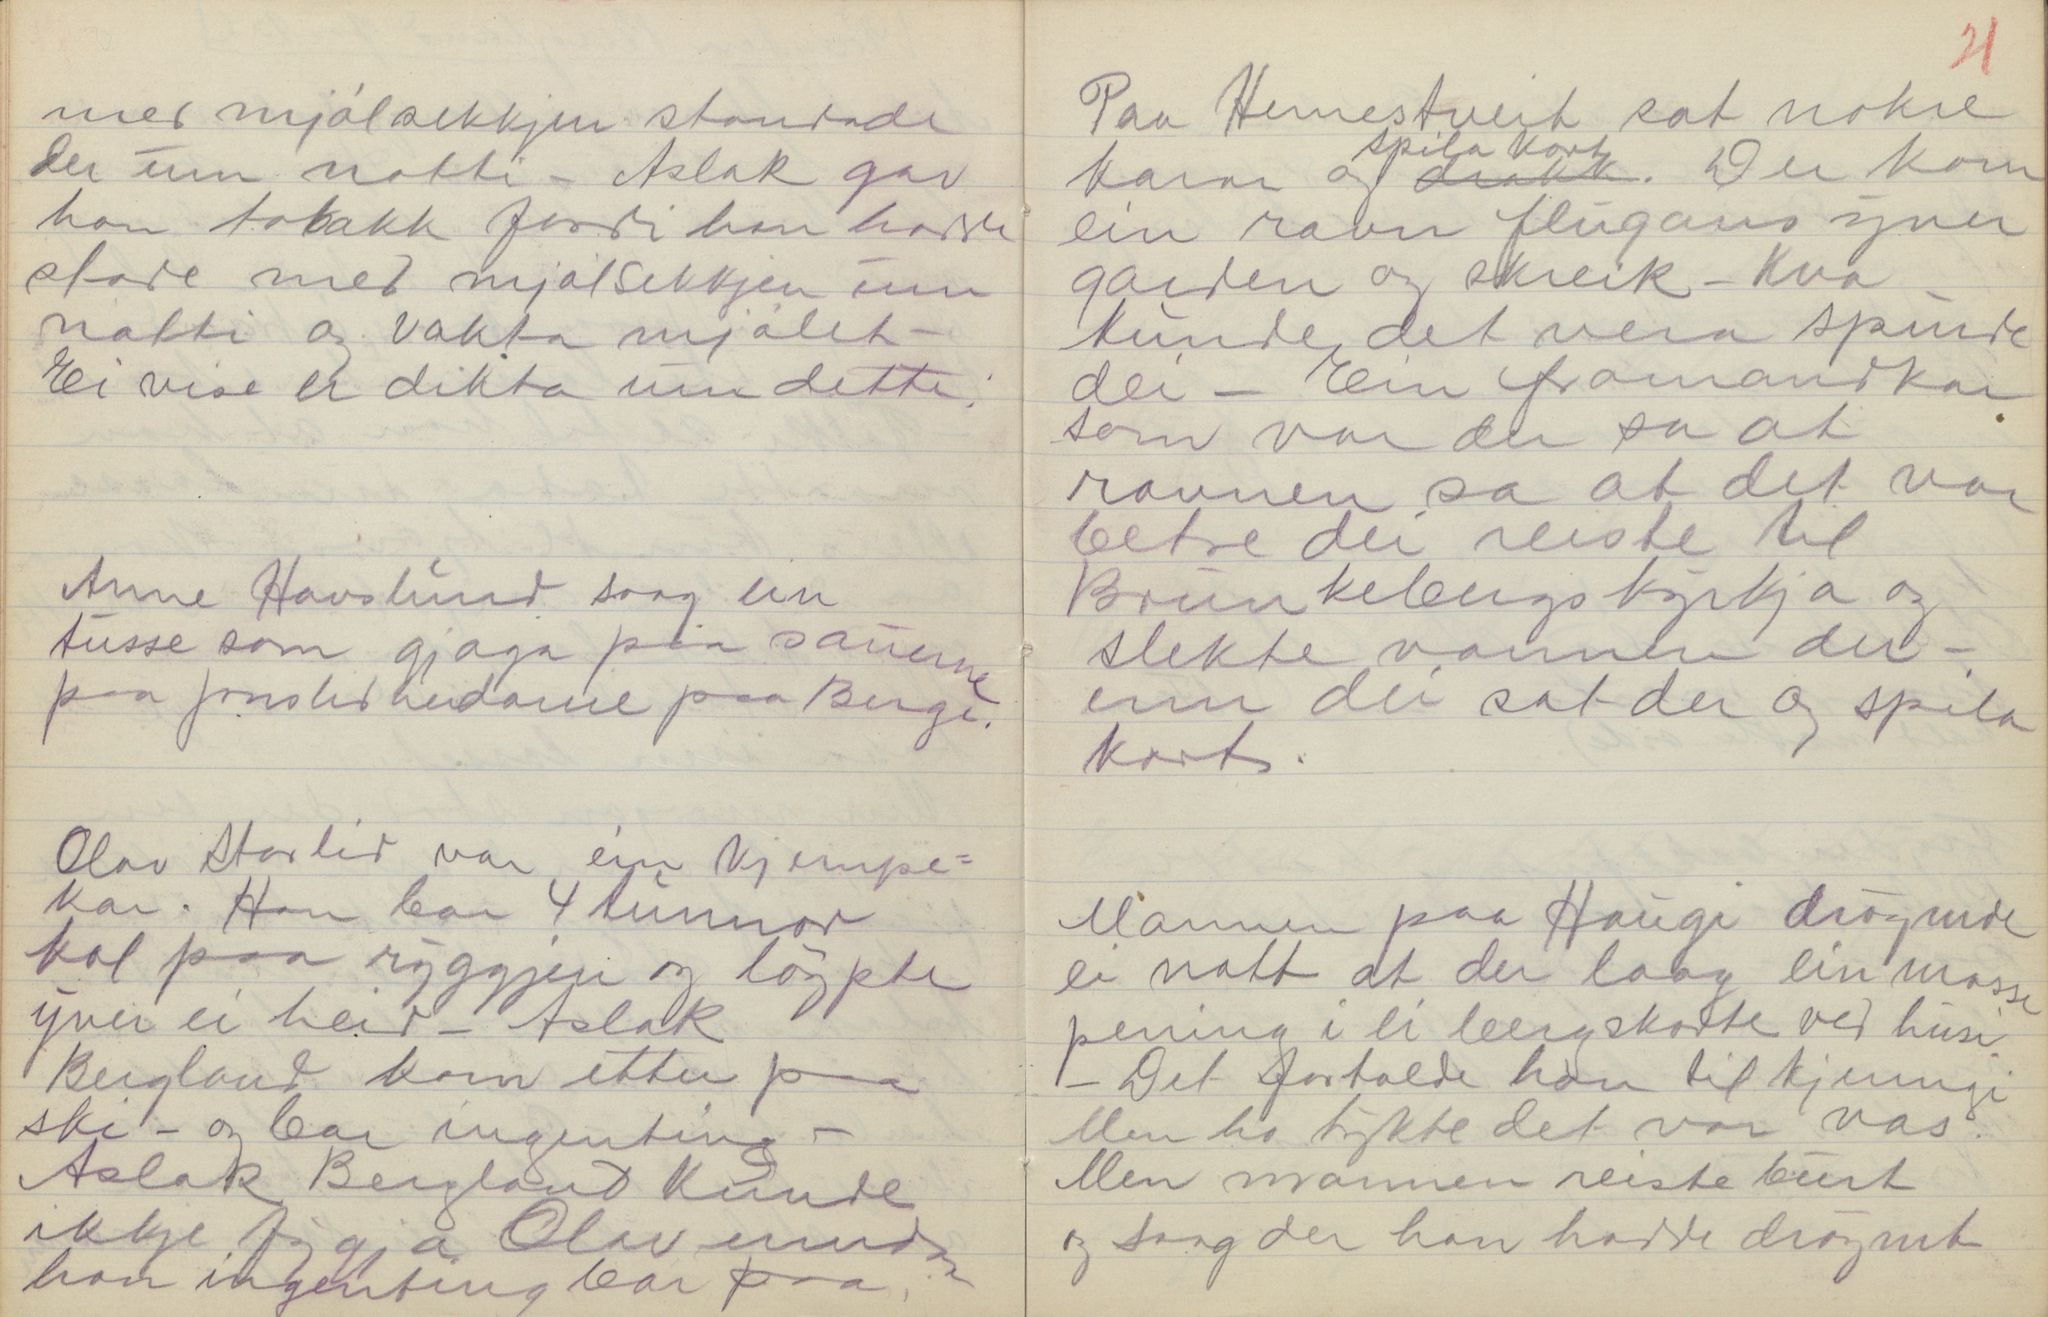 med mjölsekkjen standade
der um notti - Aslak gav
han tobakk fordi han hadde
stade med mjölsekkjen um
natti og vakta mjölet -
Ei vise er dikta um dette.
Anne Havslund saag ein
tusse som gjaga paa sauerne
paa jonslidheidarne paa Bergi.
Olav Storlid var ein kjempe=
kar. Han bar 4 tunnor
kol paa ryggjen og löypte
yver ei heid - Aslak
Bergland kom etter paa
ski - og bar ingenting -
Aslak Bergland kunde
ikkje fygja Olav endaa
han ingenting bar paa.
21
Paa Hemestveit sat nokre
spila kort
karar og drakk. Der kom
ein ravn flugans yver
garden og skreik - Kva
kunde det vera spurde
dei - Ein framandkar
som var der sa at
ravnen sa at det var
betre dei reiste til
Brunkebergs kyrkja og
slekte varmen der -
enn dei sat der og spila
kort.
Mannen paa Haugi dröymde
ei nott at der laag ein masse
pening i ei bergskorte ved husi
- Det fortalde han til kjerringi
Men ho tykte det var vas.
Men mannen reiste burt
og saag der han hadde dröymt